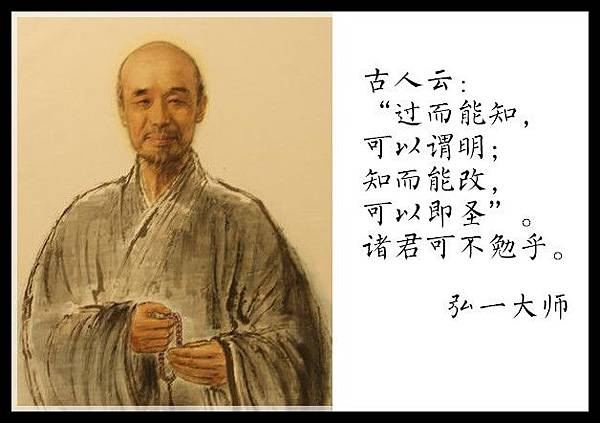 古人云：
“过而能知，
可以谓明；
知而能改，
可以即圣”。
诸君可不勉乎。
弘一大师